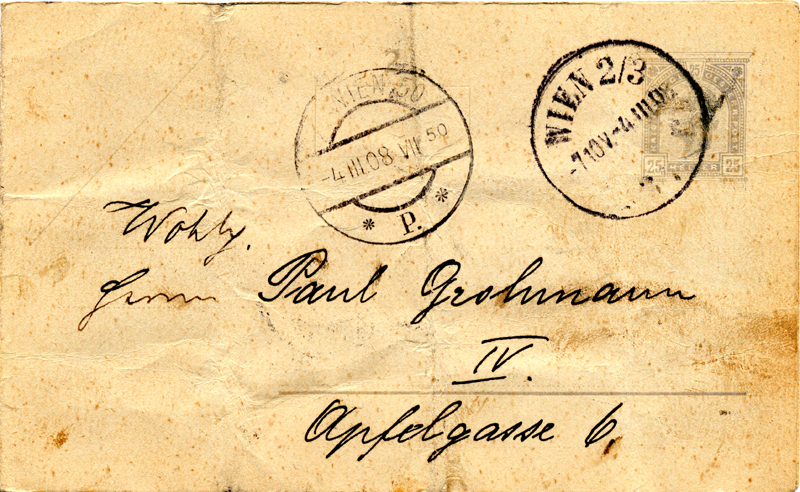 WIEN 50
-4.III.08 VII 50
* P. *
WIEN 2/3
-710V.-4.III.08
25 HELLER 25
Wohlg.
Herrn Paul Grohmann
IV.
Apfelgasse 6.